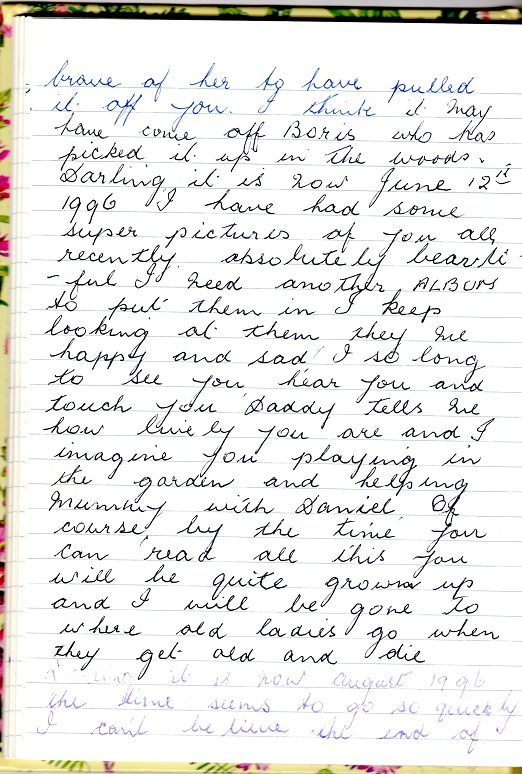 brave of her to have pulled
it off you. I think it may
have come off Boris who has
picked it up in the woods.
Darling it is now June 12th
1996 I have had some
super pictures of you all
recently absolutely beauti-
-ful I need another ALBUM
to put them in I keep
looking at them they me
happy and sad I so long
to see you hear you and
touch you Daddy tells me
how lively you are and I
imagine you playing in
the garden and helping
Mummy with Daniel Of
course, by the time you
can read all this you
will be quite grown up
and I will be gone to
where old ladies go when
they get old and die
it is now August 1996
the time seems to go so quickly
I can't believe the end of